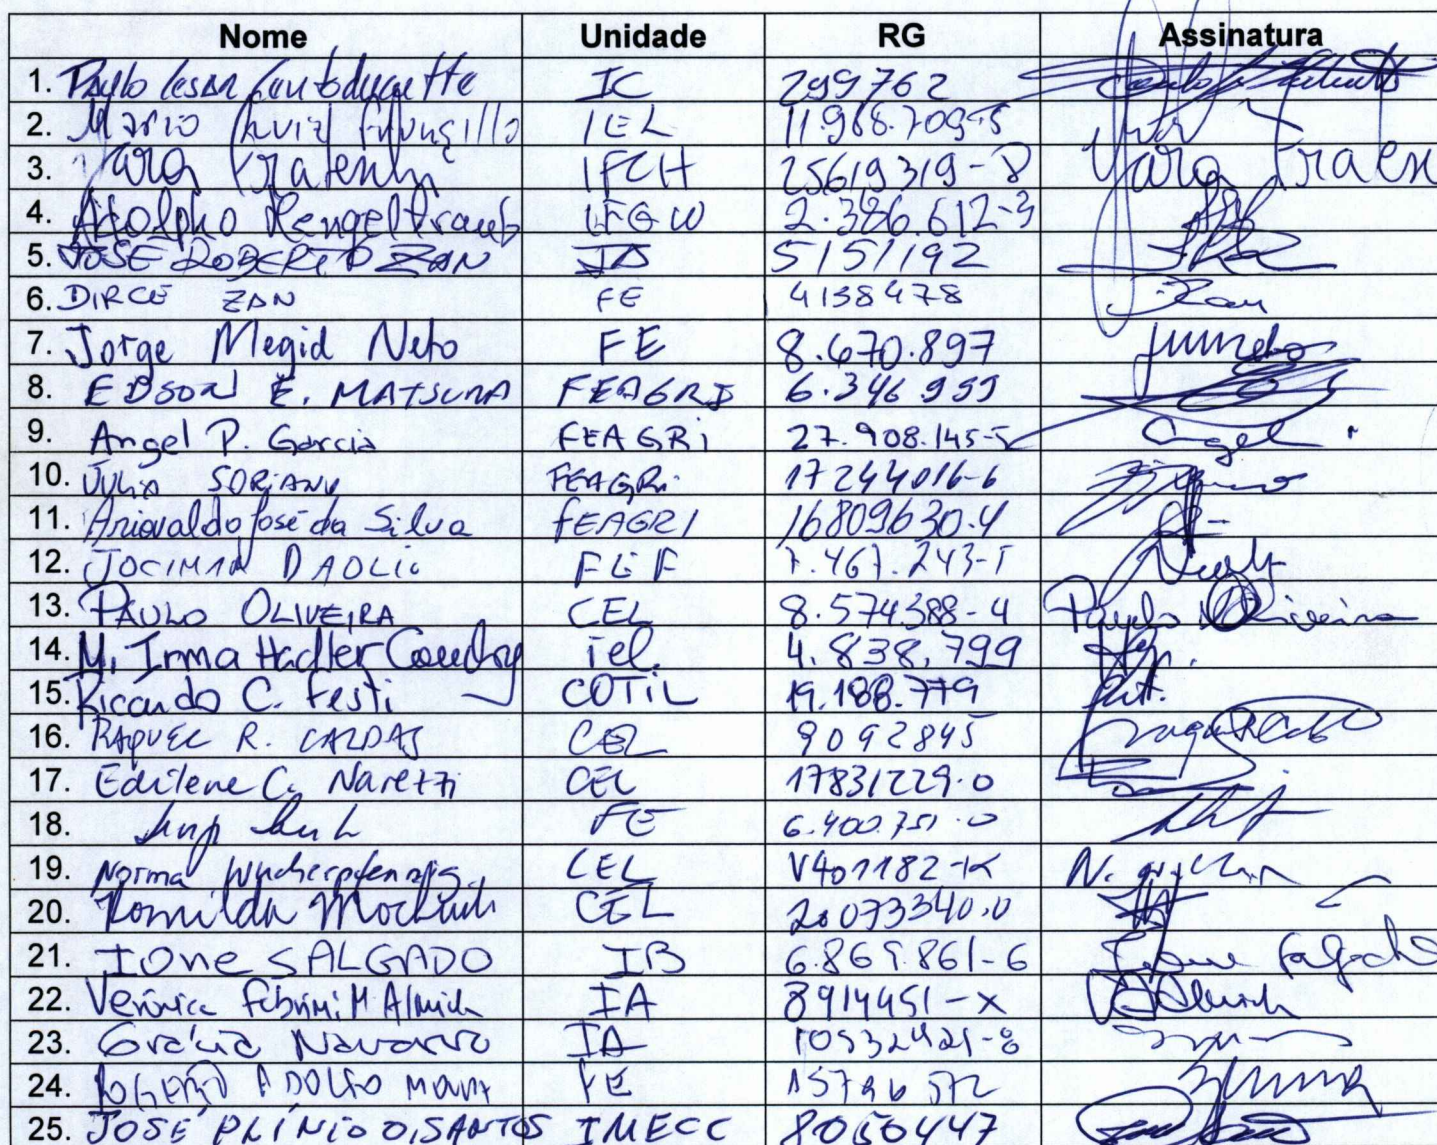 Nome Unidade RG Assinatura
1. Paulo Cesar Centoducatte IC 299762
2. Mario Luiz Frungillo IEL 11.968.709-5
3. Yara Frateschi IFCH 25619319-8 Yara
4. Adolpho Hengeltraub IFGW 2.386.612-3
5. JOSÉ ROBERTO ZAN IA 5151192
6. DIRCE ZAN FE 4138478 Zan
7. Jorge Megid Neto FE 8.670.897
8. EDSON E. MATSURA FEAGRI 6.346 999
9. Angel P. Garcia FEAGRi 27.908.145-5 Angel
10. Julio SORIANO FEAGRi 17244016-6
11. Ariovaldo José da Silva fEAGRI 16809630-4
12. JOCIMAR DAOLIO FEF 7.467.243-1
13. PAULO OLIVEIRA CEL 8.574388-4 Paulo Oliveira
14. M. Irma Hadler Coudry iel. 4.838.799
15. Ricardo C. Festi COTIL 19.188.779
16. RAQUEL R. CALDAS CEL 9092845
17. Edilene C. Naretti CEL 17831229-0
18. FE 6.400.751-0
19. Norma Wucherpfennig CEL V401182-K
20. Romilda Mochiuti CEL 20073340.0
21. Ione SALGADO IB 6.869.861-6 Ione Salgado
22. Verônica Fabrini M Almeida IA 8914451-X
23. Grácia Navarro IA 10532421-8
24. ROGÉRIO ADOLFO MOURA FE
25. JOSÉ PLÍNIO O. SANTOS IMECC 8050447